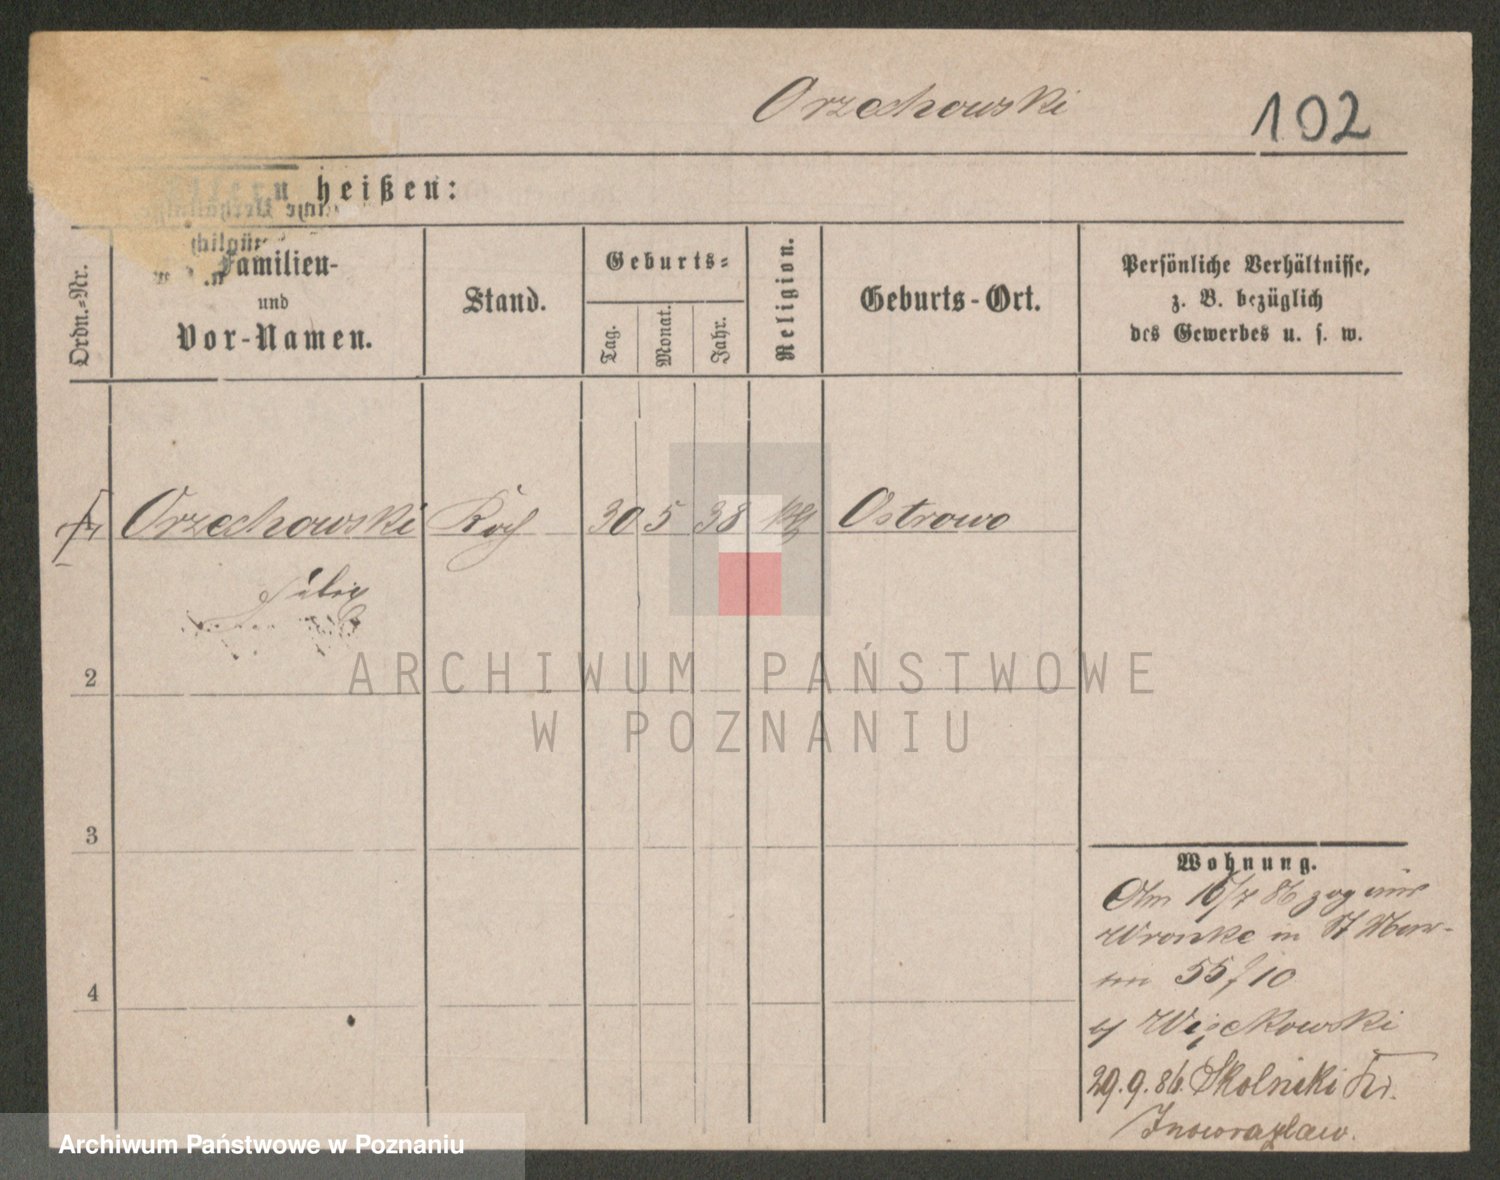 Orzechowski
102
heißen:
Ordn.-Nr.
Familien-
und
Vor-Namen.
Stand.
Geburts-
Tag.
Monat.
Jahr.
Religion.
Geburts-Ort.
Persönliche Verhältnisse,
z. B. bezüglich
des Gewerbes u. s. w.
1 Orzechowski Koch 30 5 38 kth Ostrowo
Felix
2
3
4
Wohnung.
Am 16/7 86 zog
Wronke in St
55/10
b/ Więckowski
29.9.86. Skolniki Kr.
Inowrazlaw.
ARCHIWUM PAŃSTWOWE
W POZNANIU
Archiwum Państwowe w Poznaniu